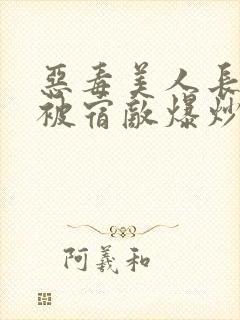 惡毒美人長
被宿敵爆炒
阿羲和